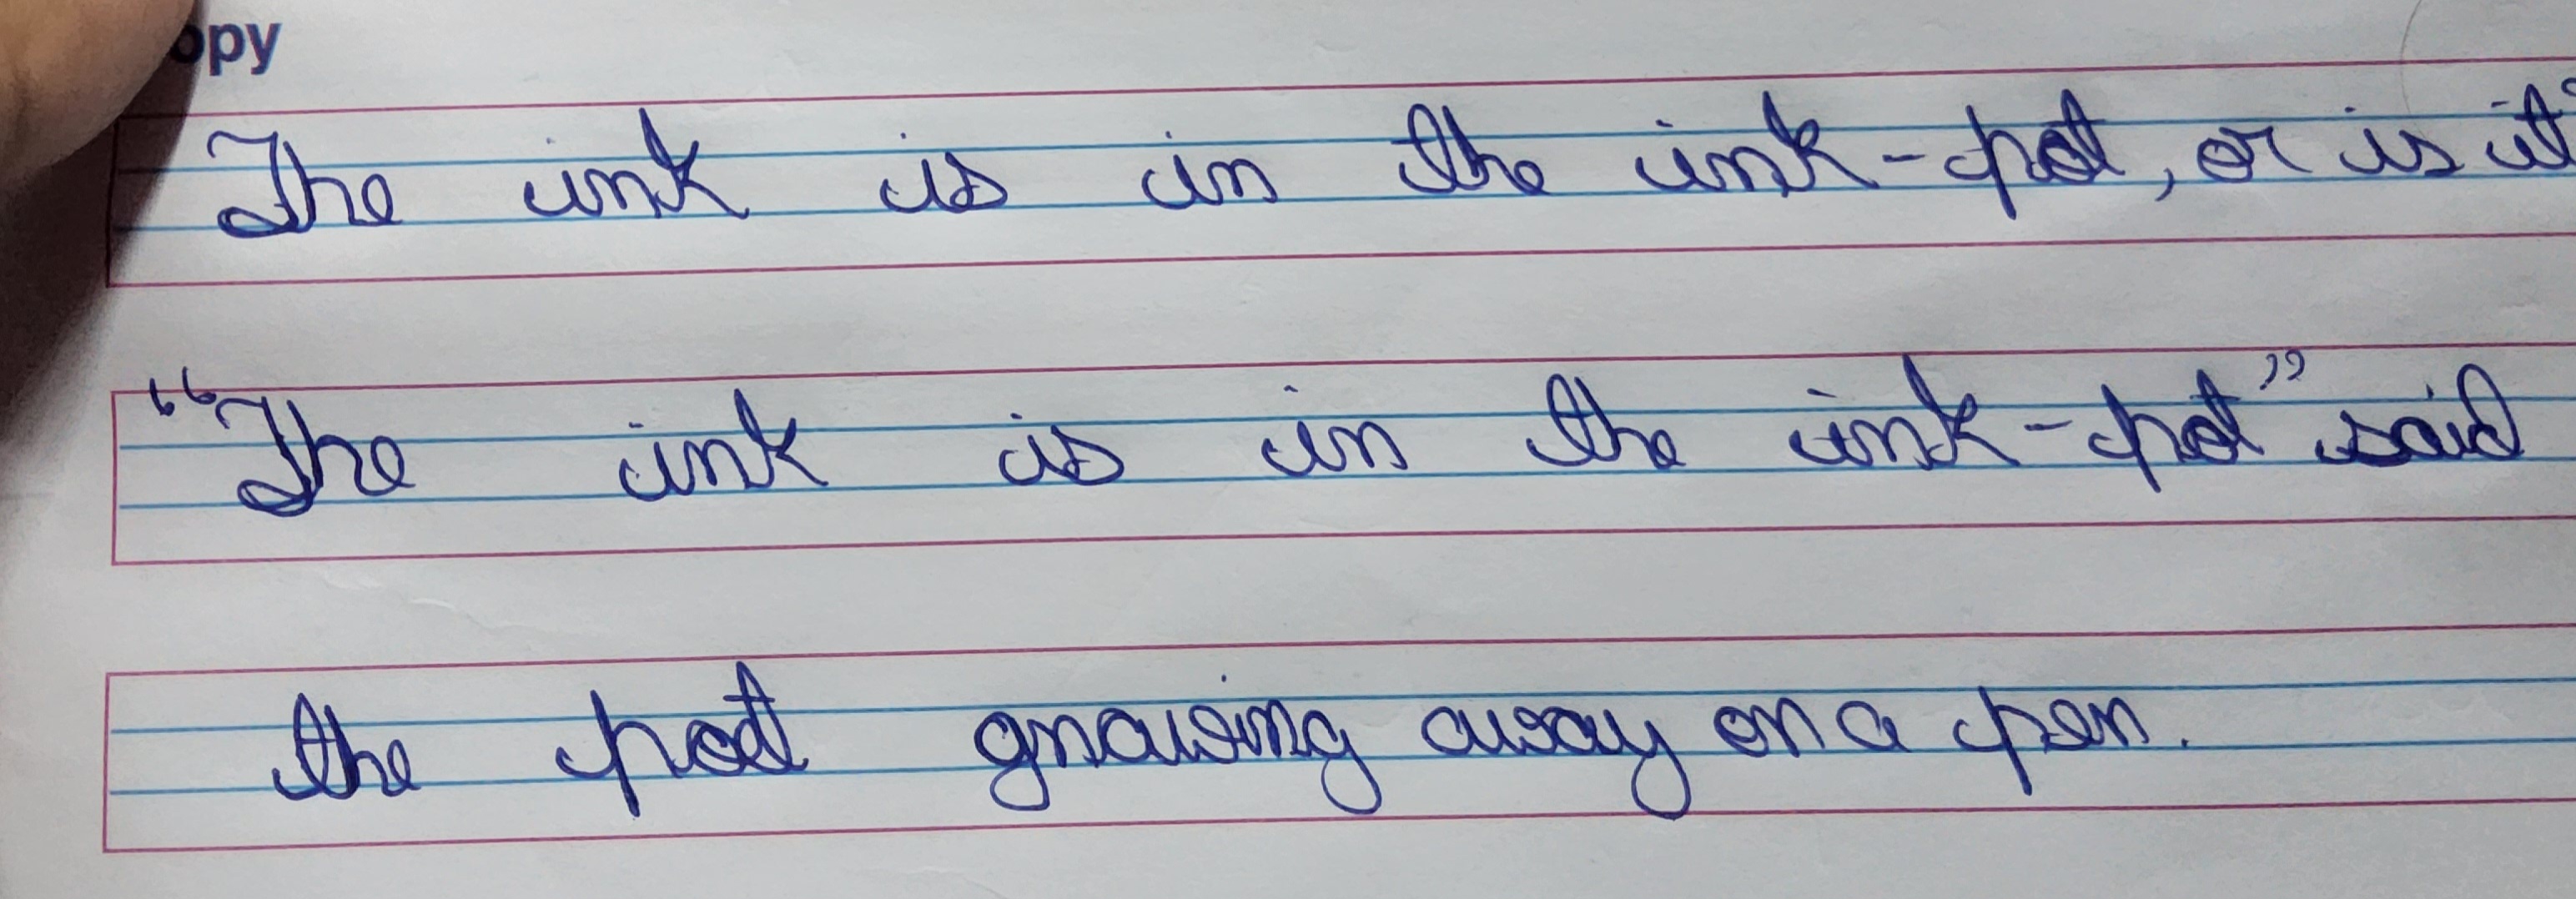 opy
The ink is in the ink-pot, or is it?
“The ink is in the ink-pot” said
the pot gnawing away on a pen.